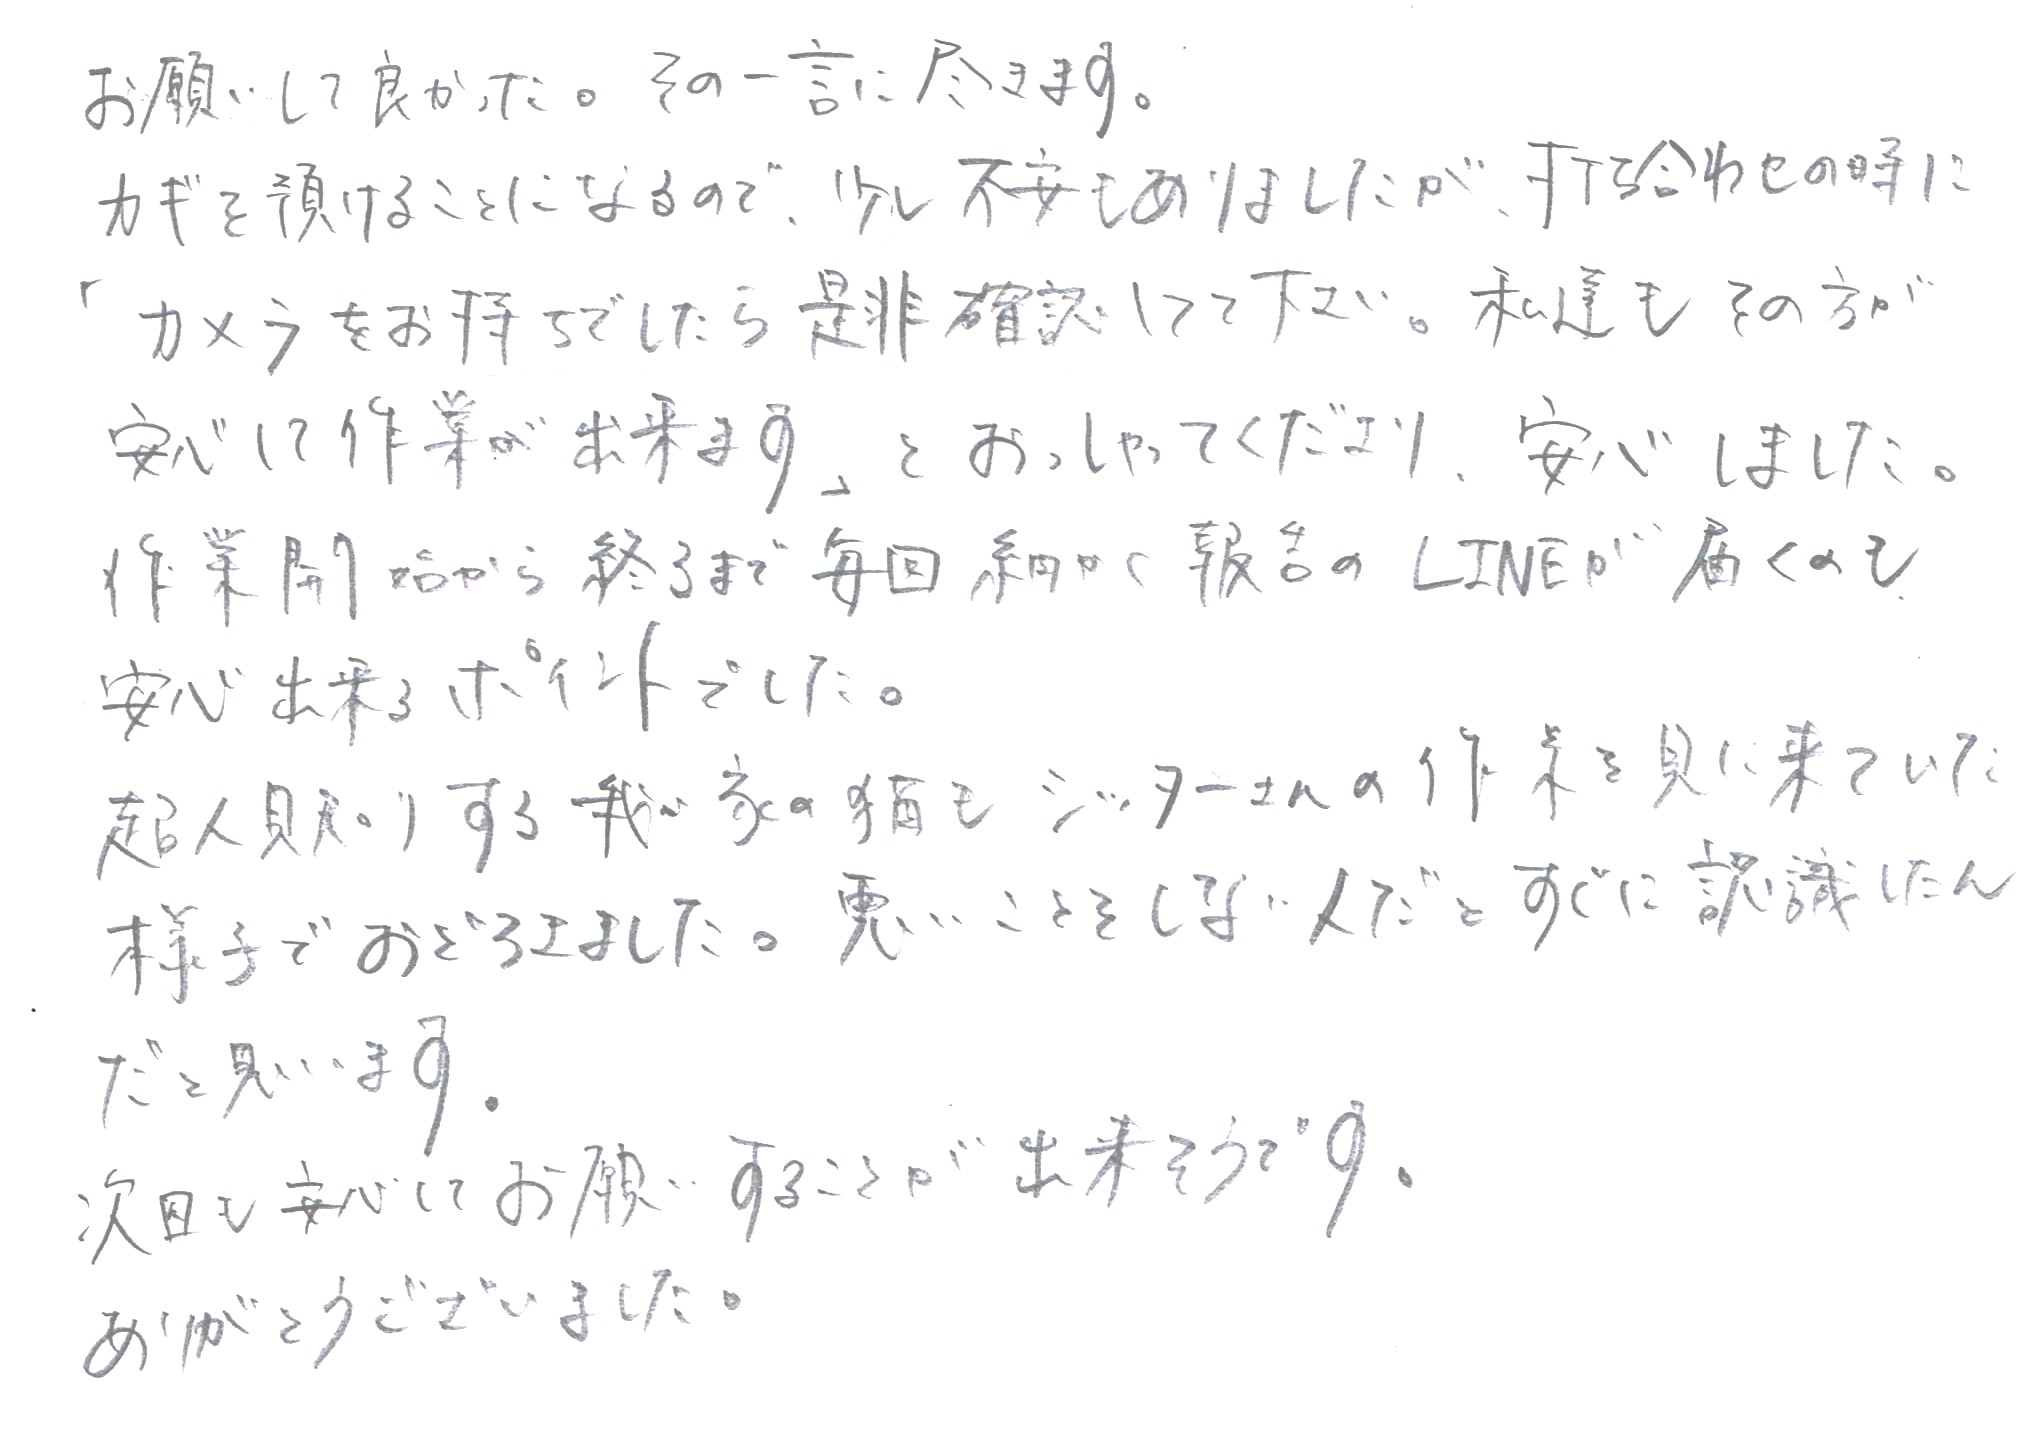 お願いして良かった。その一言に尽きます。
カギを預けることになるので、少し不安もありましたが、打ち合わせの時に
「カメラをお持ちでしたら是非確認してて下さい。私達もその方が
安心して作業が出来ます」とおっしゃってくださり、安心しました。
作業開始から終るまで毎回細かく報告のLINEが届くのも
安心出来るポイントでした。
超人見知りする我が家の猫もシッターさんの作業を見に来ていた
様子でおどろきました。悪いことをしない人だとすぐに認識したん
だと思います。
次回も安心してお願いすることが出来そうです。
ありがとうございました。